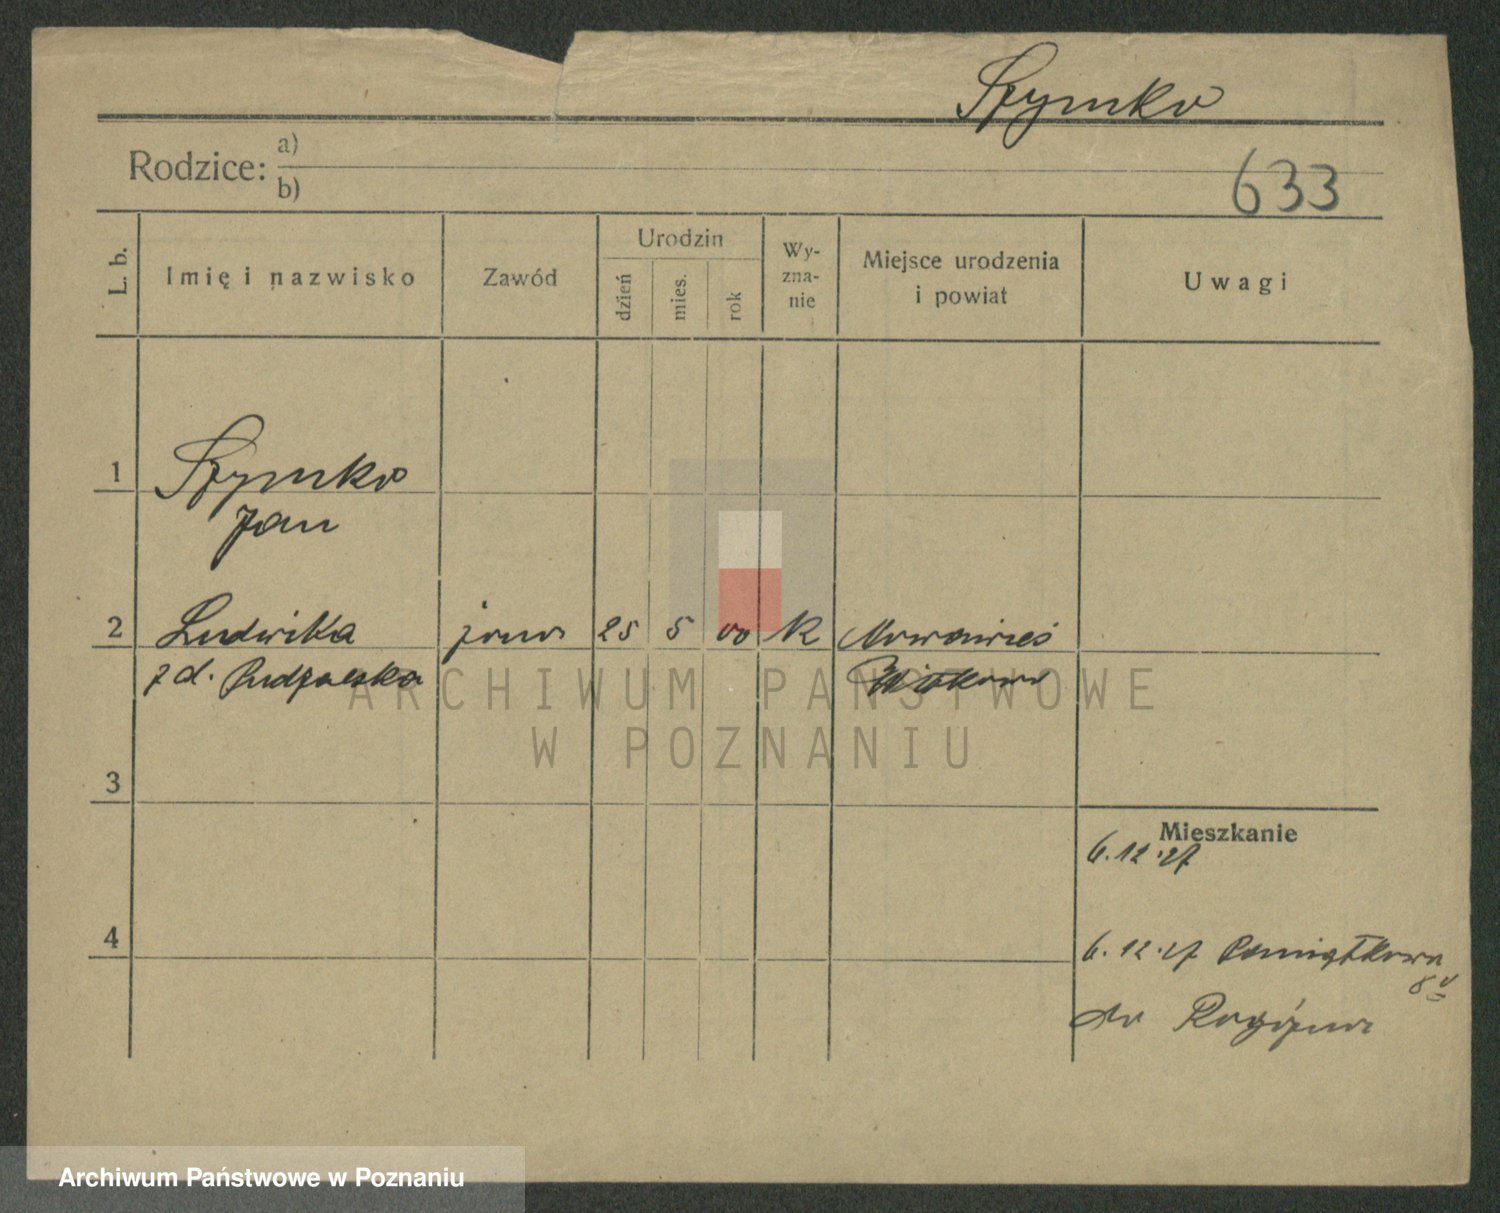 Szymko
Rodzice: a)
b)
633
L. b.
Imię i nazwisko
Zawód
Urodzin
dzień
mies.
rok
Wy-
zna-
nie
Miejsce urodzenia
i powiat
Uwagi
1
Szymko
Jan
2
Ludwika
żona
25
5
00
K
Nowawieś
z d. Rudzalska
Witkowo
ARCHIWUM PAŃSTWOWE
W POZNANIU
3
Mieszkanie
6.12.27
4
6.12.27 Pamiątkowa
8
do Rogoźna
Archiwum Państwowe w Poznaniu